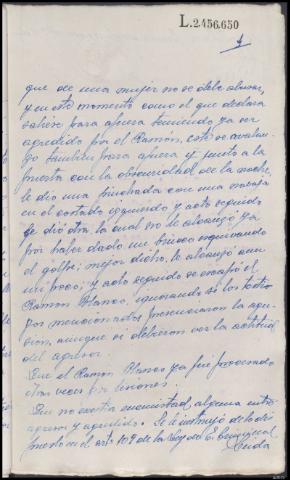 L.2456.650
que de una mujer no se debe abusar,
y en este momento como el que declara
saliese para afuera temiendo ya ser
agredido por el Ramón, este se avalan-
zo tambien para afuera y junto a la
puerta con la obscuridad de la noche,
le dio una pinchada con una navaja
en el costado izquierdo y acto seguido
le dió otra la cual no le alcanzó ya
por haber dado un brinco esquivando
el golpe; mejor dicho, le alcanzó aun
un poco; y acto seguido se escapó el
Ramon Blanco, ignorando si los testi-
gos mencionados presenciaron la agre-
sion, aunque si debieron ver la actitud
del agresor.
Que el Ramón Blanco ya fué procesado
otras veces por lesiones.
Que no existia enemistad alguna entre
agresor y agredido. Se le instruyó de lo dis
puesto en el art. 109 de la Ley de E. Criminal